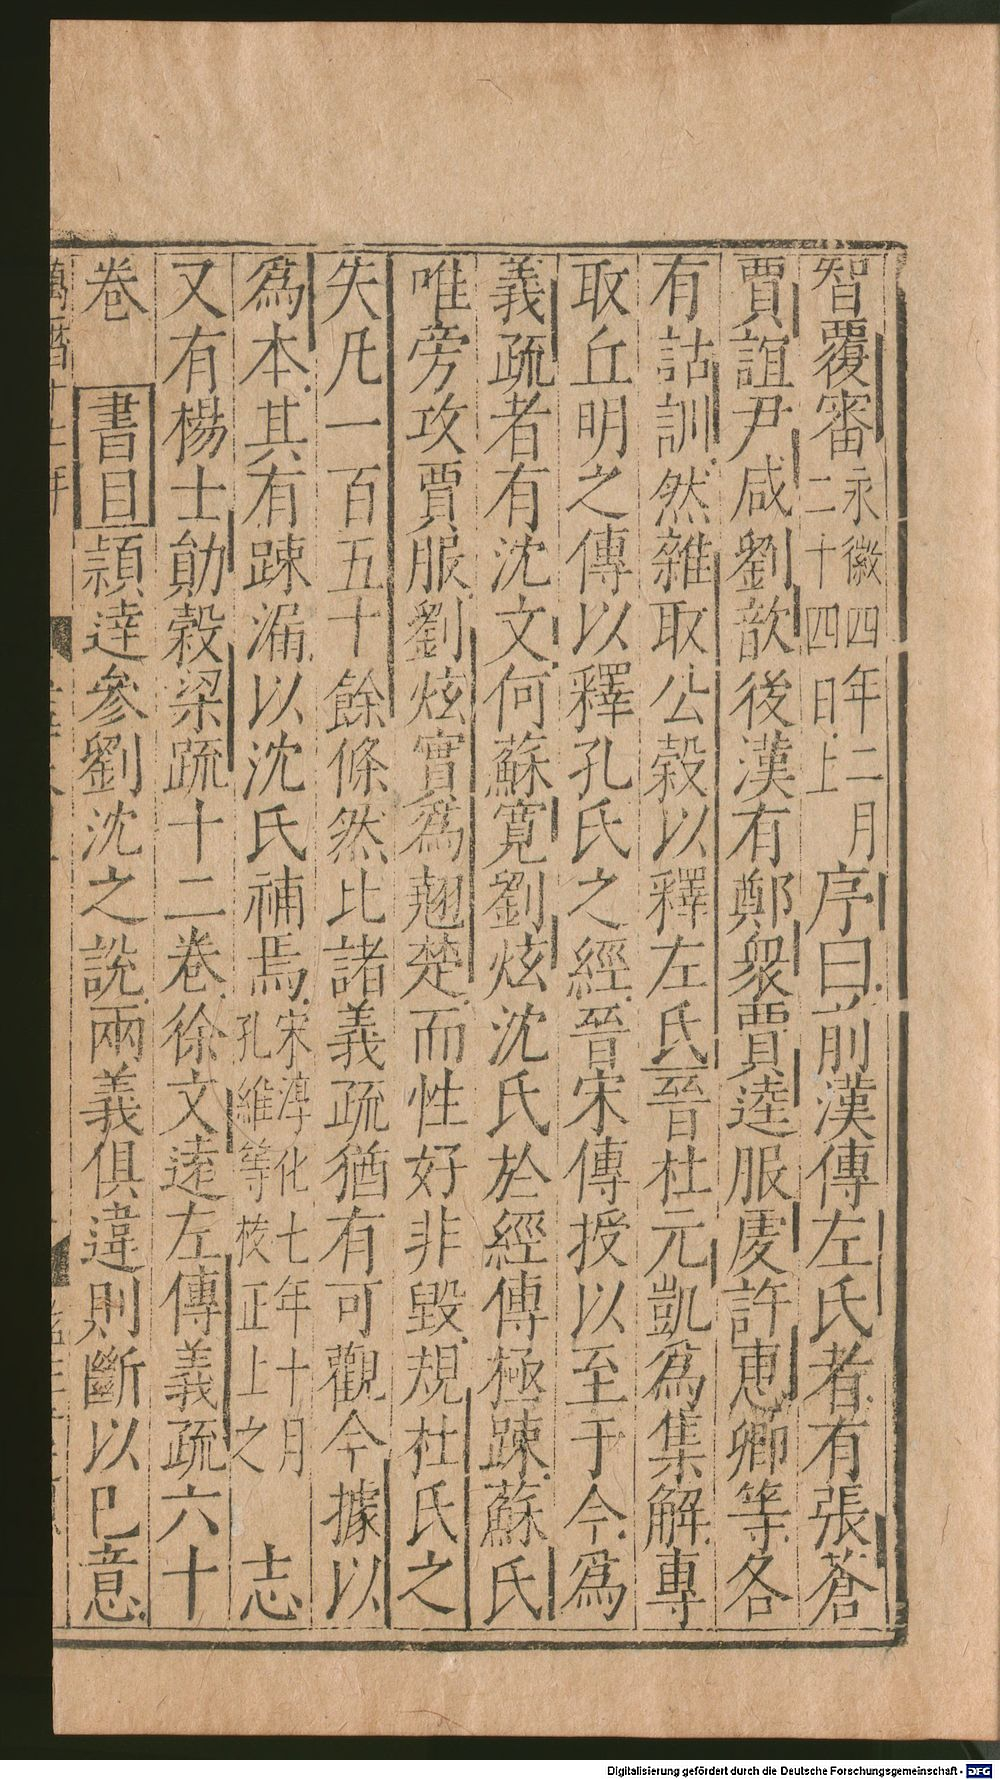 智覆審永徽四年二月二十四日上序曰前漢傳左氏者有張蒼
賈誼尹咸劉歆後漢有鄭衆賈逵服虔許惠卿等各
有詁訓然雜取公穀以釋左氏晉杜元凱爲集解專
取丘明之傳以釋孔氏之經晉宋傳授以至于今爲
義疏者有沈文何蘇寬劉炫沈氏於經傳極踈蘇氏
唯旁攻賈服劉炫實爲翹楚而性好非毀規杜氏之
失凡一百五十餘條然比諸義疏猶有可觀今據以
爲本其有踈漏以沈氏補焉宋淳化七年十月孔維等校正上之志
又有楊士勛穀梁疏十二卷徐文遠左傳義疏六十
卷書目頴達參劉沈之說兩義俱違則斷以巳意
Digitalisierung gefördert durch die Deutsche Forschungsgemeinschaft - DFG